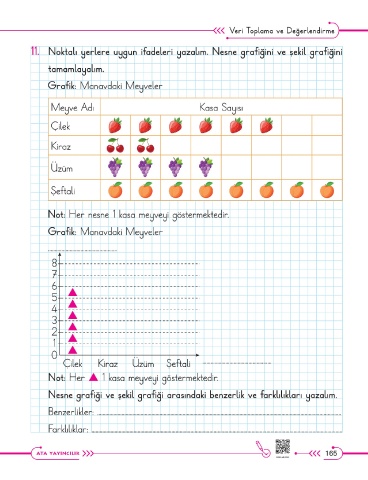 Veri Toplama ve Değerlendirme
11. Noktalı yerlere uygun ifadeleri yazalım. Nesne grafiğini ve şekil grafiğini
tamamlayalım.
Grafik: Manavdaki Meyveler
Meyve Adı Kasa Sayısı
Çilek
Kiraz
Üzüm
Şeftali
Not: Her nesne 1 kasa meyveyi göstermektedir.
Grafik: Manavdaki Meyveler
8
7
6
5
4
3
2
1
0
Çilek Kiraz Üzüm Şeftali
Not: Her 1 kasa meyveyi göstermektedir.
Nesne grafiği ve şekil grafiği arasındaki benzerlik ve farklılıkları yazalım.
Benzerlikler:
Farklılıklar:
ATA YAYINCILIK
165